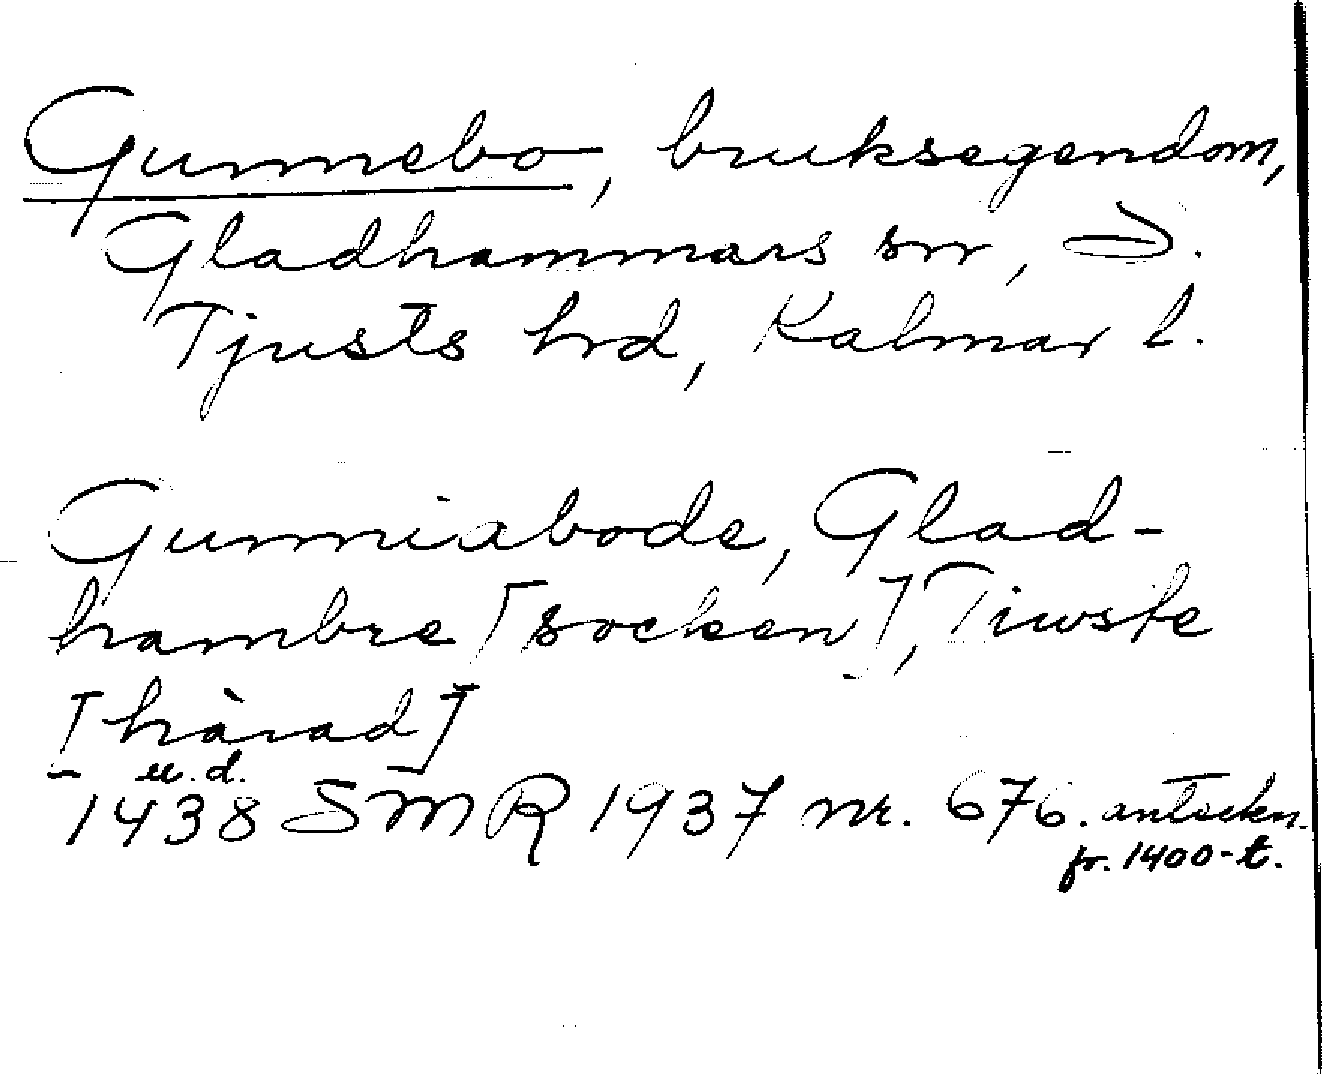 Gunnebo, bruksegendom,
Gladhammars sn, S.
Tjusts hrd, Kalmar l.
Gunniabode, Glad-
hambre [socken], Tiwste
[härad]
u.d.
1438 SMR 1937 nr. 676. anteckn.
fr. 1400-t.